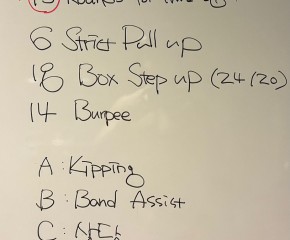 Rounds for time
6 Strict Pull up
18 Box Step up (24/20)
14 Burpee
A : Kipping
B : Band Assist
C :